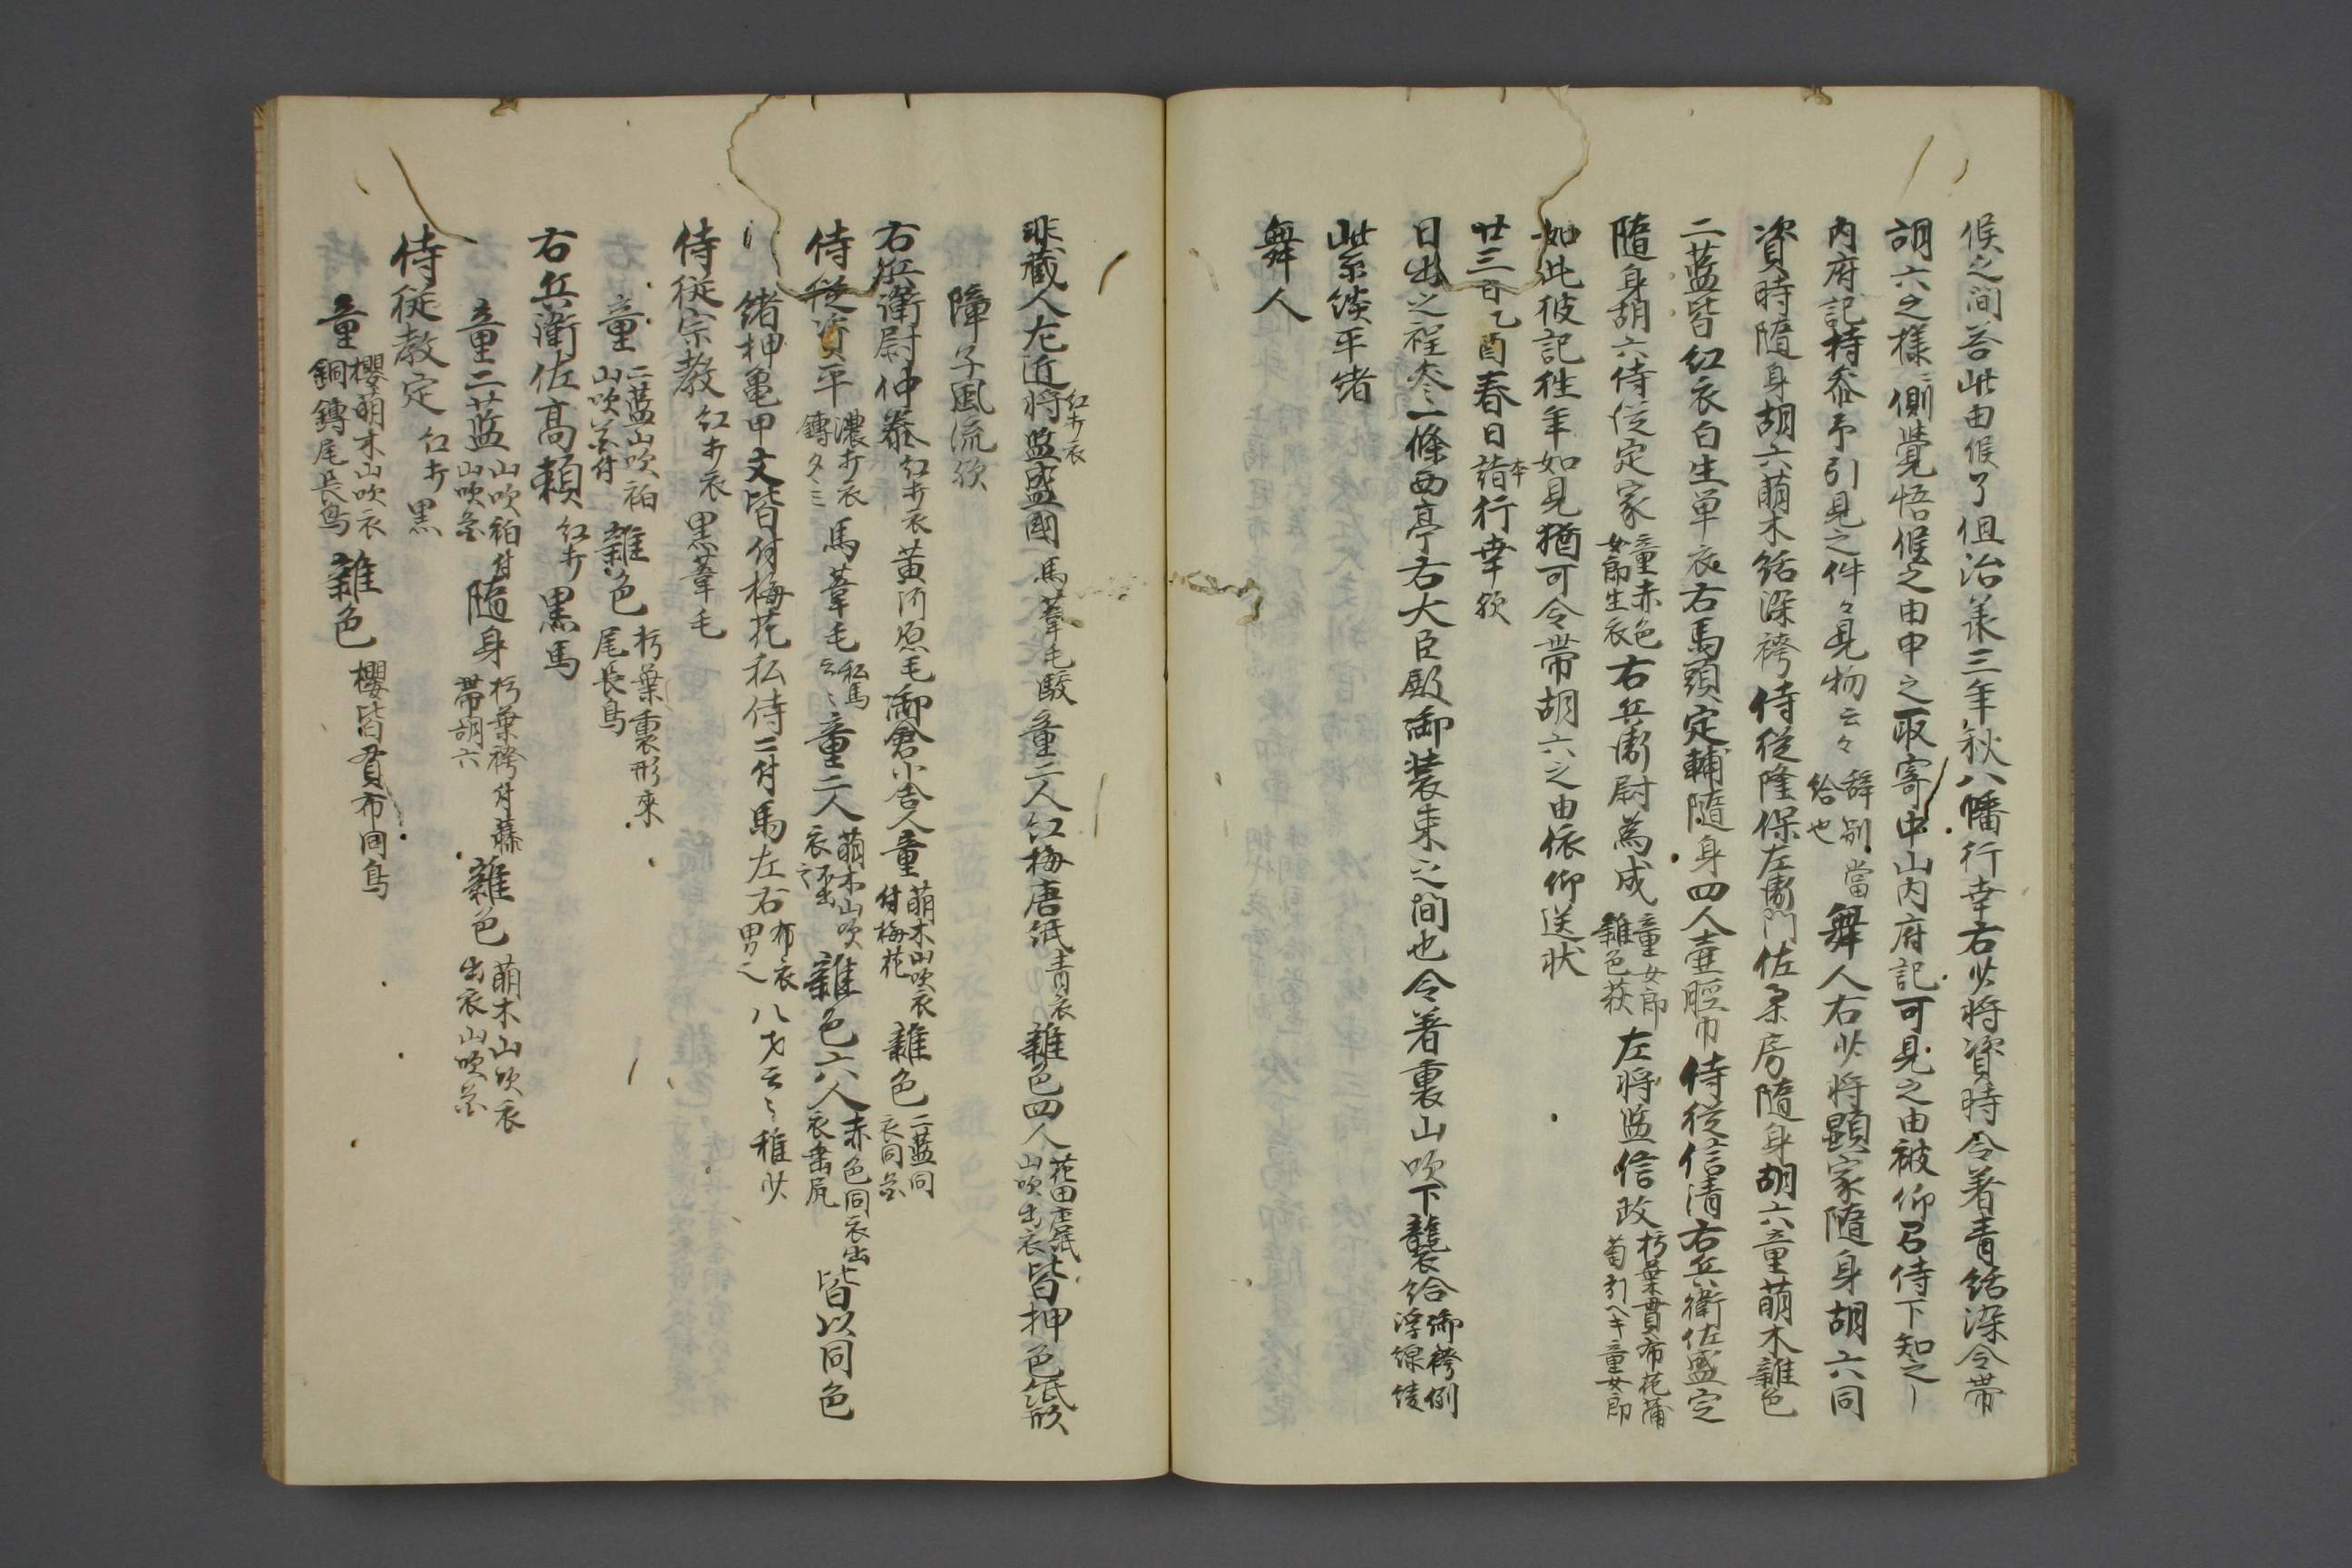 候之間答此由候了但治承三年秋八幡行幸右少将資時令着青結染令帯
胡六之様側覚悟候之由申之取寄中山内府記可見之由被仰召侍下知之
内府記持参予引見之件々見物云々 辞別當給也 舞人右少将顕家随身胡六同
資時随身胡六萌木結染袴侍従隆保左衛門佐 房随身胡六童萌木雑色
二藍皆紅衣白生単衣右馬頭定輔随身四人壷脛巾侍従信清右兵衛佐盛定
随身胡六侍従定家 童赤色女郎生衣 右兵衛尉為成 童女郎雑色萩 左将監信政 朽葉貫布花蒲萄引ヘキ童女郎
如此彼記往年如見猶可令帯胡六之由依仰送状
廿三日乙酉春日詣 本 行幸欤
日出之程参一條西亭右大臣殿御装束之間也令着裏山吹下襲給 御袴例浮線綾
紫緂平緒
舞人
非蔵人左近将監盛国 紅打衣 馬葦毛駮童二人紅梅唐紙 青衣 雑色四人 花田唐紙山吹出衣 皆押色紙形
障子風流欤
右兵衛尉仲泰 紅打衣 黄河原毛御倉小舎人童 萌木山吹衣付梅花 雑色 二藍同衣同色
侍従資平 濃打衣 馬葦毛 私馬云々 童二人 萌木山吹衣 雑色六人 赤色同衣出衣垂尻 皆以同色
緒押亀甲文皆付梅花私侍二付馬左右 布衣男之 八才云々稚少
侍従宗教 紅打衣 黒葦毛
童 二藍山吹袙山吹花付 雑色 朽葉裏形來尾長鳥
右兵衛佐高頼 紅打 黒馬
童二藍 山吹袙付山吹花 随身 朽葉袴付藤帯胡六 雑色 萌木山吹衣出衣山吹花
侍従教定 紅打黒
童 櫻萌木山吹衣銅鏄尾長鳥 雑色 櫻皆貲布同鳥